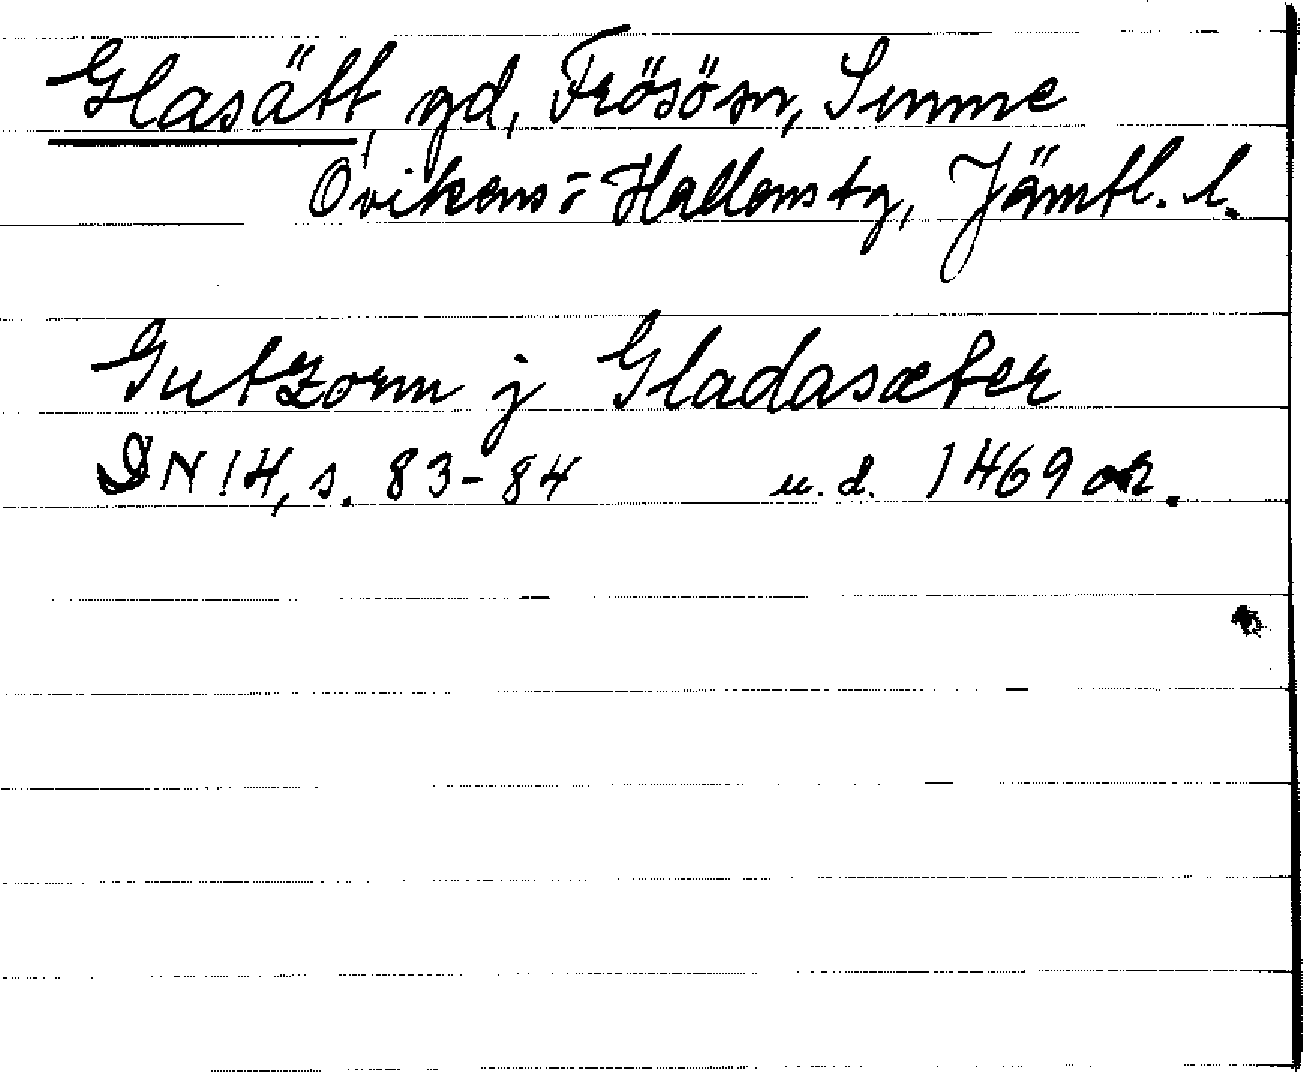 Glasätt, gd, Frösön, Sunne
Ovikens- Hallens tg, Jämtl. l.
Gutzorm j Gladasæter
DN 14, s. 83-84 u.d. 1469 or.